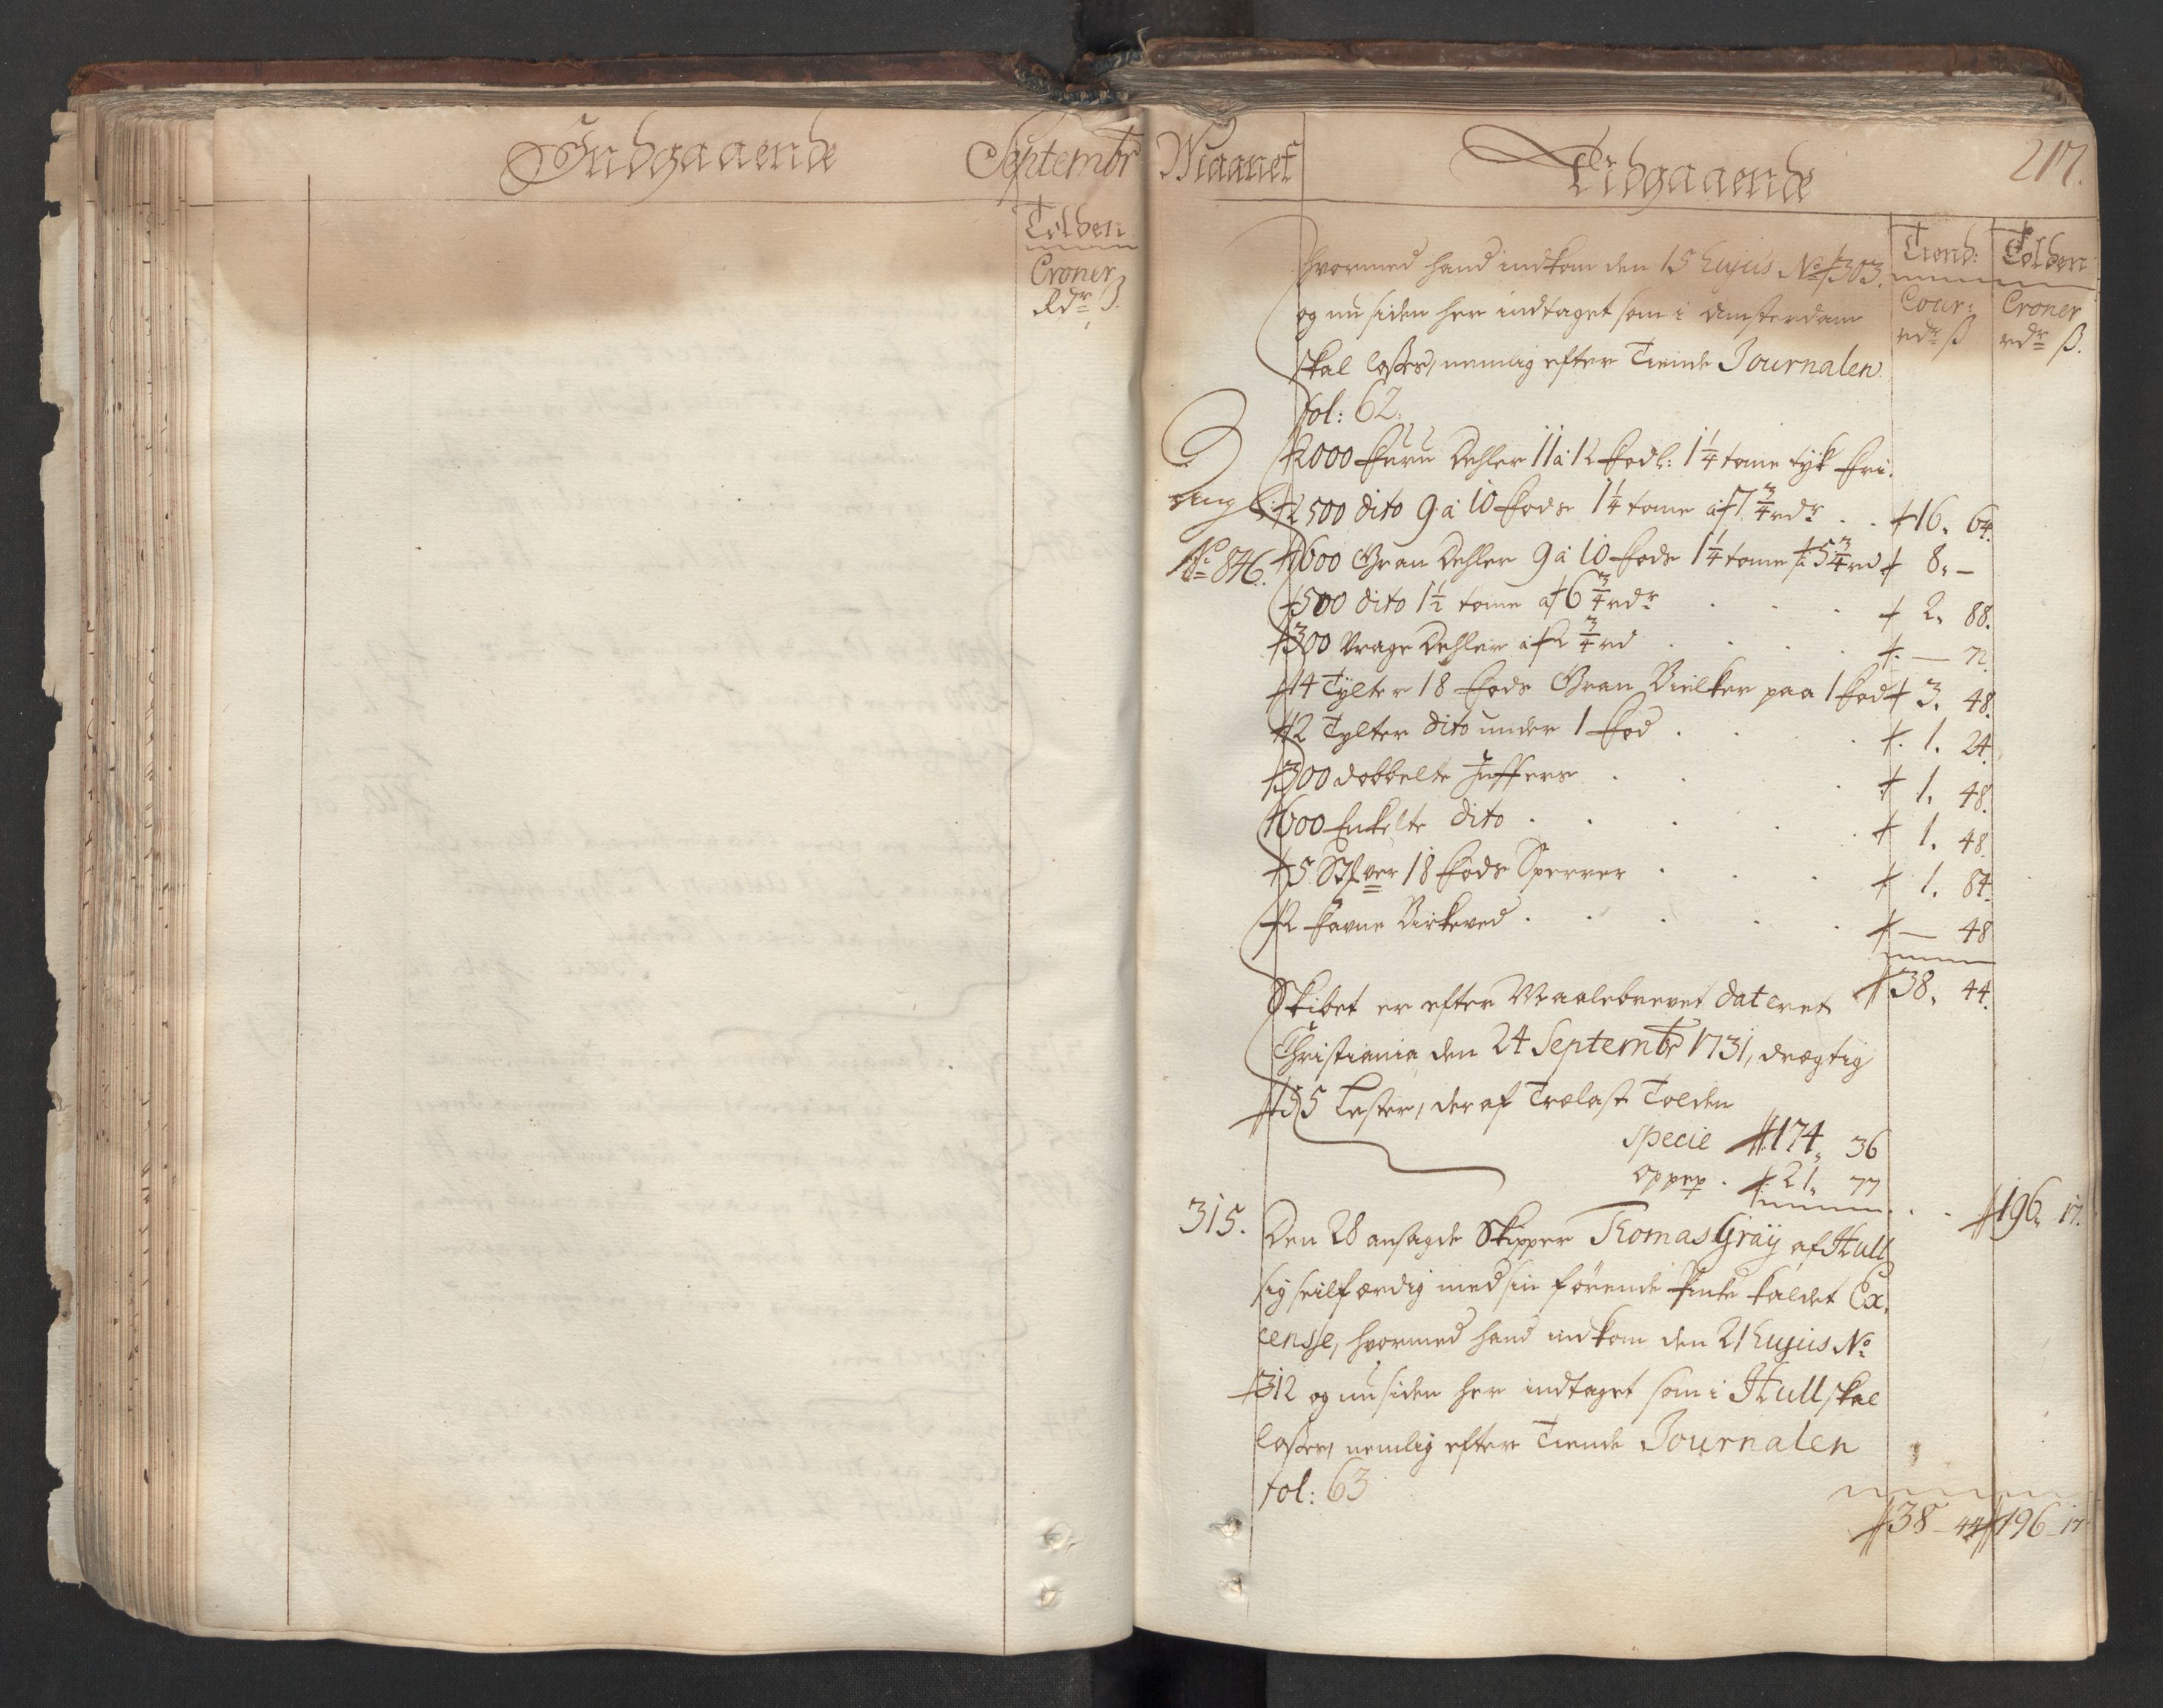 Indgaaende
Septembr
Tolden
Croner
Rdr ß.
Maanet
Udgaaende
217.
Tiend:
Tolden
Cour:
Croner
rdr ß
rdr ß.
hvormed hand indkom den 15 hujus No 303.
og nu siden her indtaget som i Amsterdam
skal losses, nemlig efter Tiende Journalen
fol: 62.
2000 Furu Dehler 11 a 12 Fod l: 1 1/4 tome tyk fri.
2500 dito 9 a 10 Fods 1 1/4 tome a 7 3/4 rdr . . 16. 64.
No 846. 1600 Gran Dehler 9 a 10 Fods 1 1/4 tome a 5 3/4 rd 8. –
500 dito 1 1/2 tome a 6 3/4 rdr . . . 2. 88.
300 Vrage Dehler a 2 3/4 rd . . . . – 72.
14 Tylter 18 Fods Gran Bielker paa 1 Fod 3. 48.
12 Tylter dito under 1 Fod . . . 1. 24.
300 dobbelte Juffers . . . 1. 48.
600 Enkelte dito . . . . 1. 48.
5 18 Fods Sperrer . . . 1. 84.
2 Favne Birkeved . . . . – 48
38. 44.
Skibet er efter Maalebrevet dateret
Christiania den 24 Septembr 1731, drægtig
55 Lester, deraf Trælast Tolden
Specie 174. 36
Oppep . 21. 77
. . 196. 17.
315. Den 28 ansagde Skipper Thomas Gray af Hull
sig seilfærdig med sin førende Pinke kaldet Ex,
cense, hvormed hand indkom den 21 hujus No
312 og nu siden her indtaget som i Hull skal
losses, nemlig efter Tiende Journalen
fol: 63
38 – 44 196 – 17